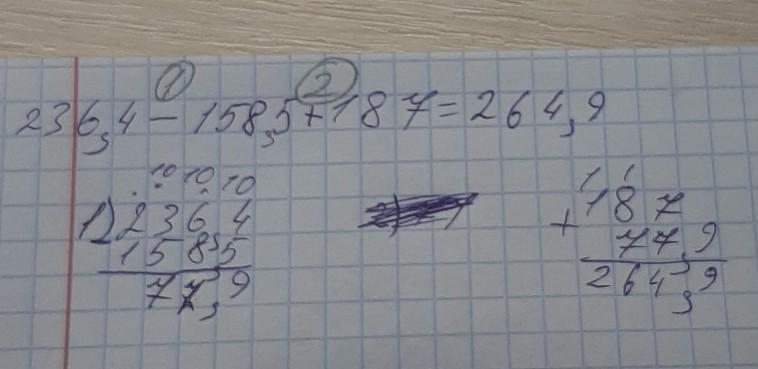 1 2
236,4 - 158,5 + 187 = 264,9
10 10 10
1) 236 4
158,5
77,9
1 1
187
+
77,9
264,9